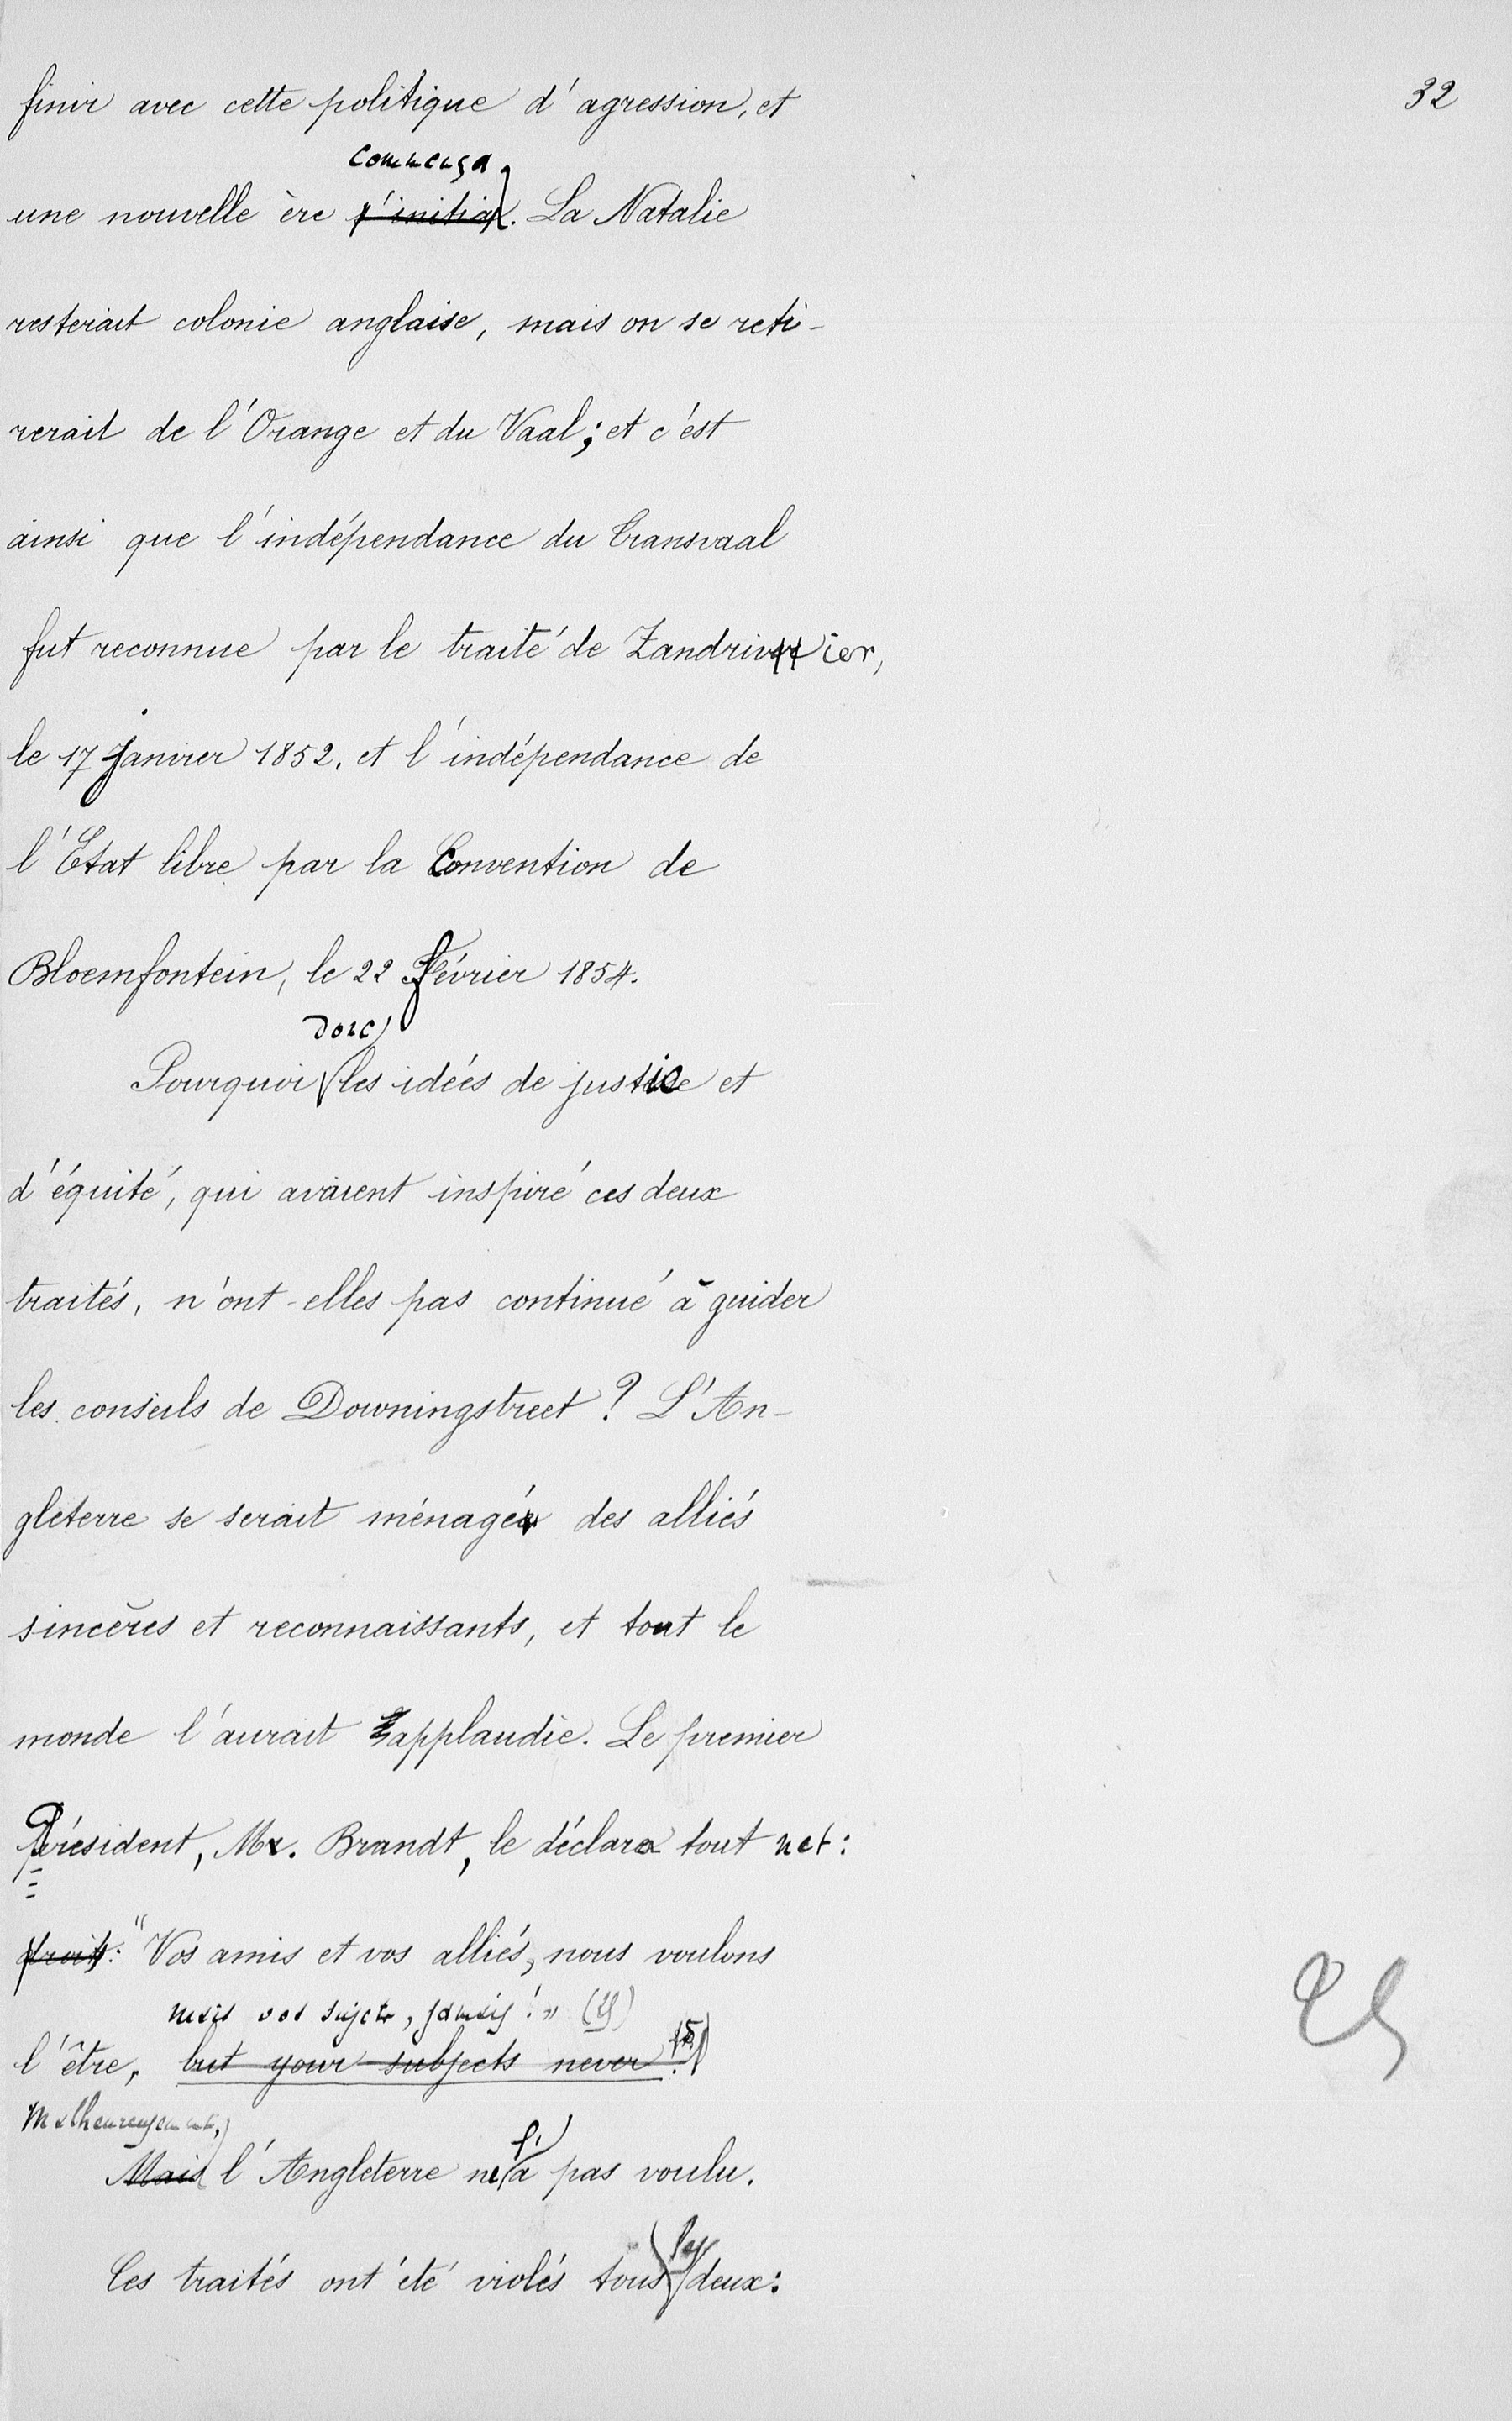 32
finir avec cette politique d'agression, et
commença
une nouvelle ère s'initia. La Natalie
resterait colonie anglaise, mais on se reti-
rerait de l'Orange et du Vaal; et c'est
ainsi que l'indépendance du Transvaal
fut reconnue par le traité de Zandrivier,
le 17 janvier 1852, et l'indépendance de
l'Etat libre par la Convention de
Bloemfontein, le 22 février 1854.
donc
Pourquoi les idées de justice et
d'équité, qui avaient inspiré ces deux
traités, n'ont-elles pas continué à guider
les conseils de Downingstreet? L'An-
gleterre se serait ménagé des alliés
sincères et reconnaissants, et tout le
monde l'aurait applaudie. Le premier
Président, Mr. Brandt, le déclara tout net:
"Vos amis et vos alliés, nous voulons
mais vos sujets, jamais!"
l'être, but your subjects never.
Malheureusement,
Mais l'Angleterre ne l'a pas voulu.
les
Ces traités ont été violés tous deux: